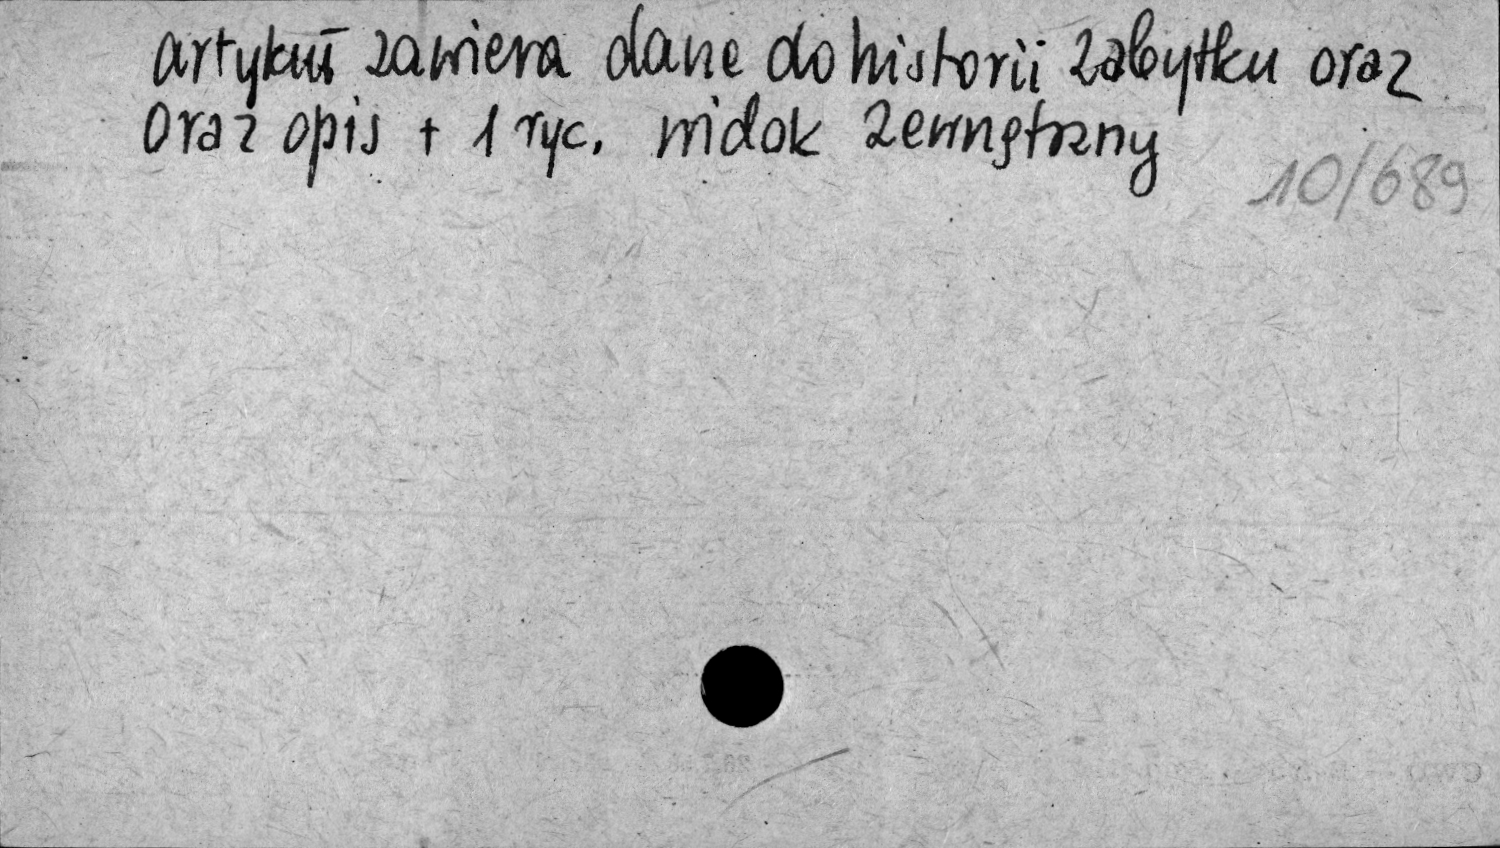 artykuł zawiera dane do historii zabytku oraz
oraz opis + 1 ryc. widok zewnętrzny
10/689